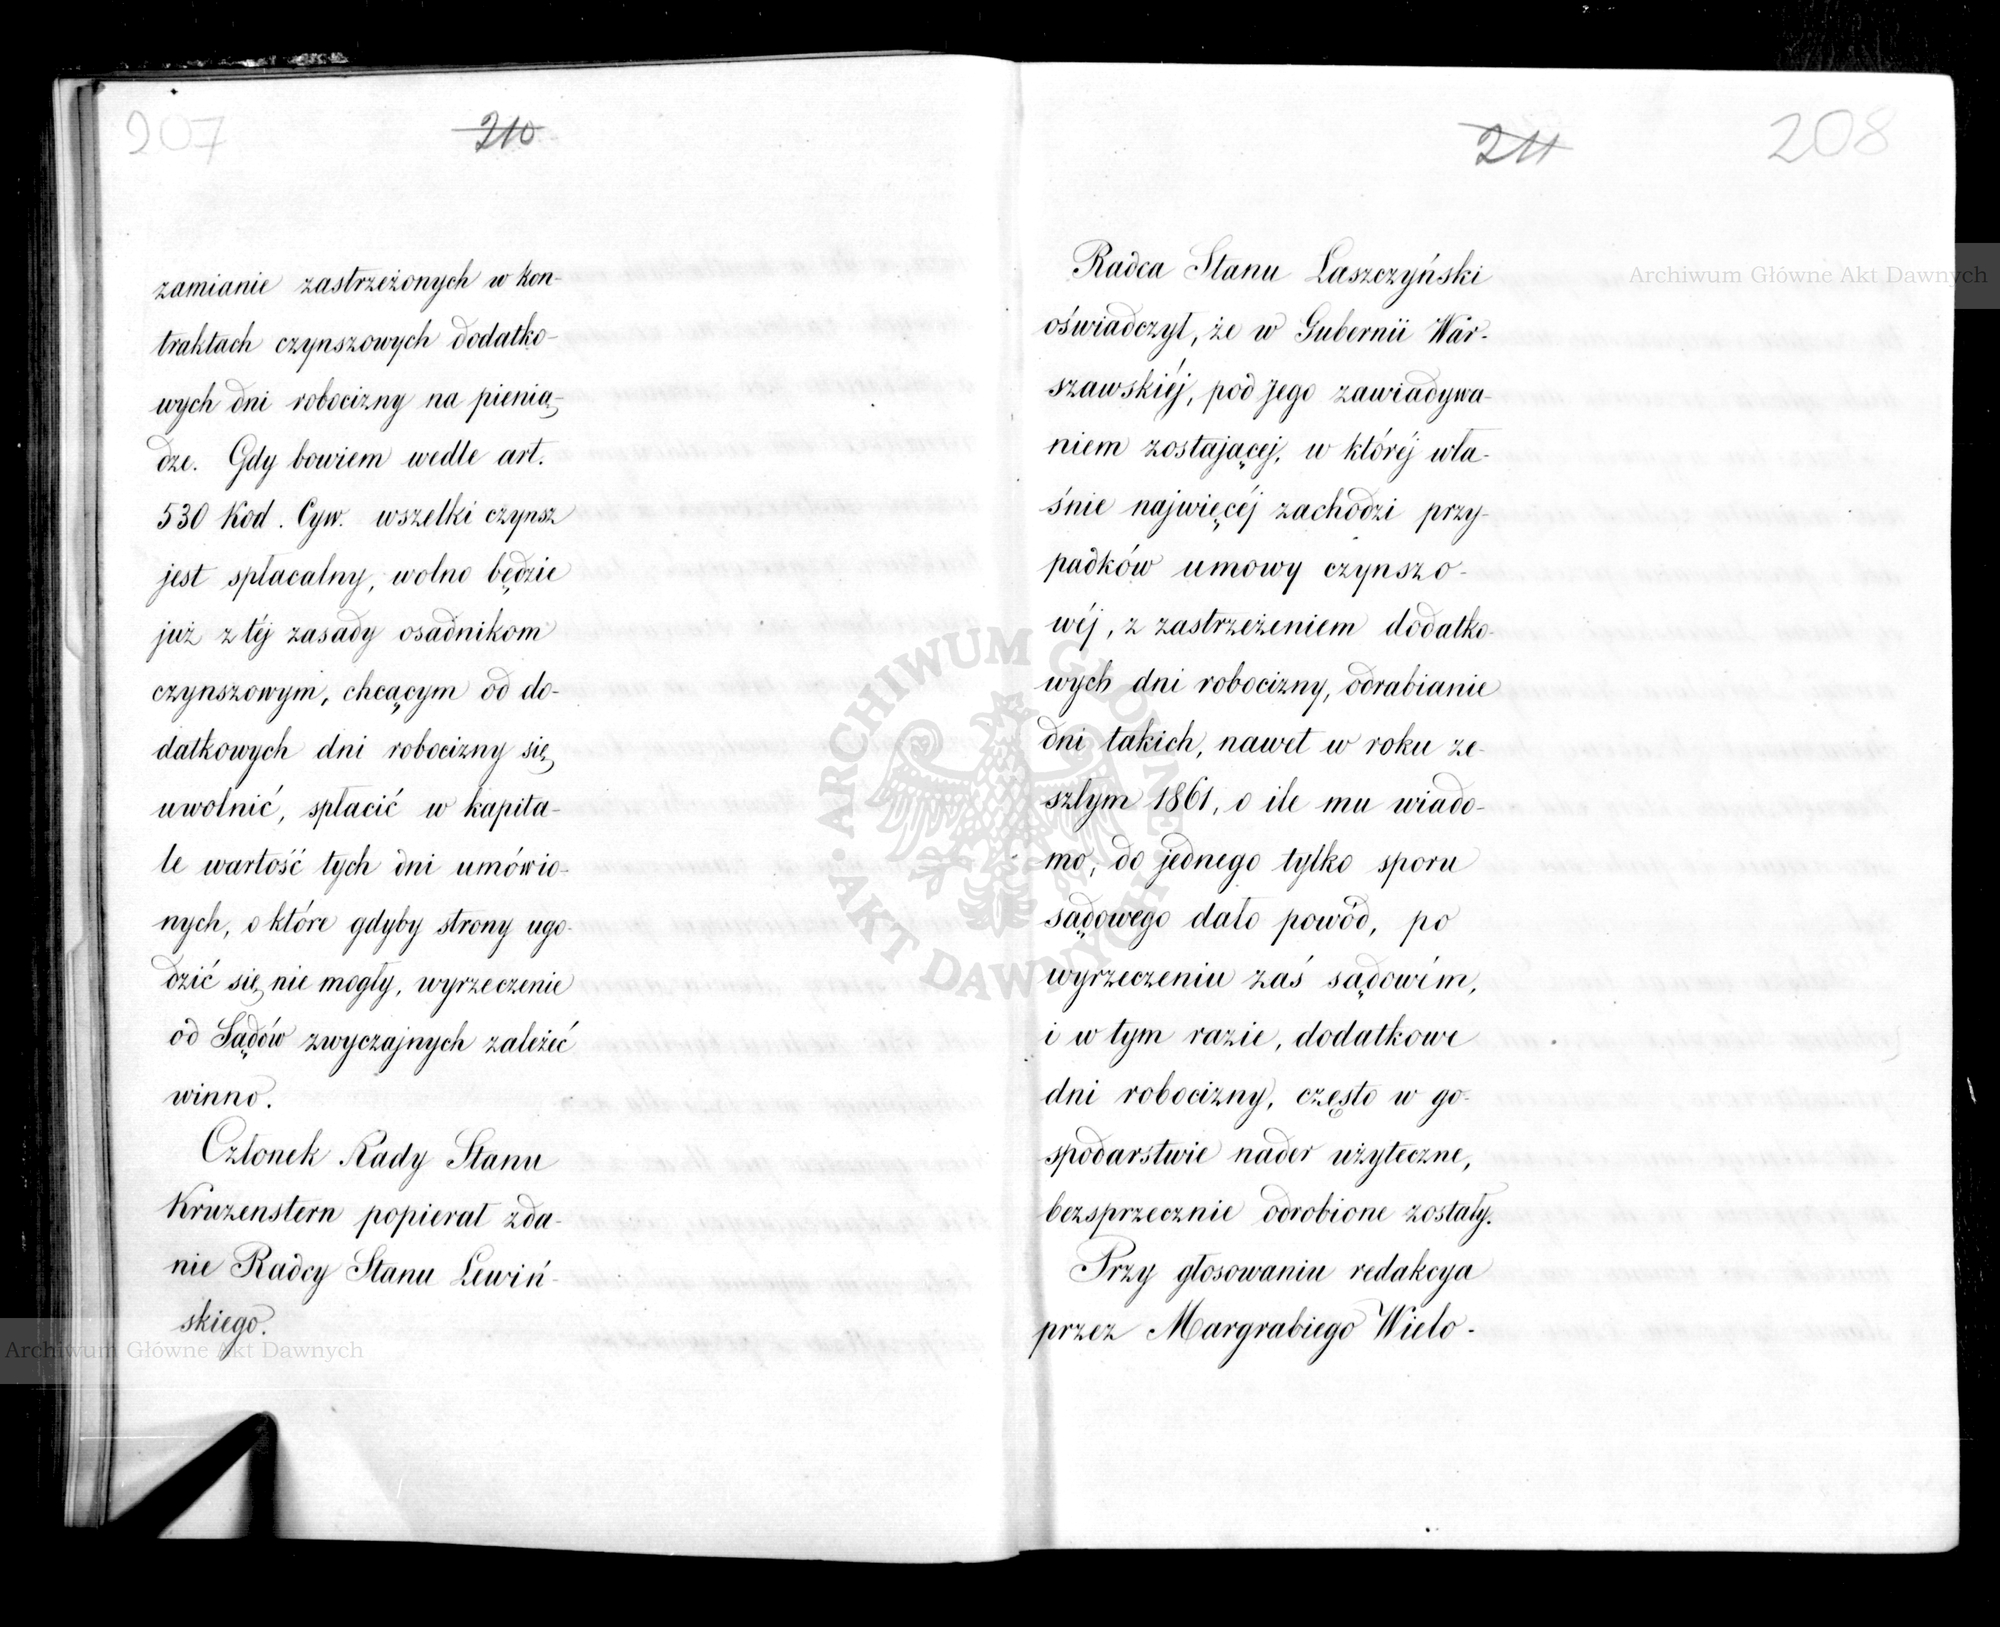 207
210
zamianie zastrzeżonych w kon-
traktach czynszowych dodatko-
wych dni robocizny na pienią-
dze. Gdy bowiem wedle art.
530 Kod. Cyw. wszelki czynsz
jest spłacalny, wolno będzie
już z téj zasady osadnikom
czynszowym, chcącym od do-
datkowych dni robocizny się
uwolnić, spłacić w kapita-
le wartość tych dni umówio-
nych, o które gdyby strony ugo-
dzić się nie mogły, wyrzeczenie
od Sądów zwyczajnych zależéć
winno.
Członek Rady Stanu
Kruzenstern popierał zda-
nie Radcy Stanu Lewiń-
skiego.
211
208
Radca Stanu Laszczyński
oświadczył, że w Gubernii War-
szawskiéj, pod Jego zawiadywa-
niem zostającej, w któréj wła-
śnie najwięcéj zachodzi przy-
padków umowy czynszo-
wéj, z zastrzeżeniem dodatko-
wych dni robocizny, odrabianie
dni takich, nawet w roku ze-
szłym 1861, o ile mu wiado-
mo, do jednego tylko sporu
sądowego dało powód, po
wyrzeczeniu zaś sądowém,
i w tym razie, dodatkowe
dni robocizny, często w go-
spodarstwie nader użyteczne,
bezsprzecznie odrobione zostały.
Przy głosowaniu redakcya
przez Margrabiego Wielo-
Archiwum Główne Akt Dawnych
ARCHIWUM GŁÓWNE
AKT DAWNYCH
Archiwum Główne Akt Dawnych